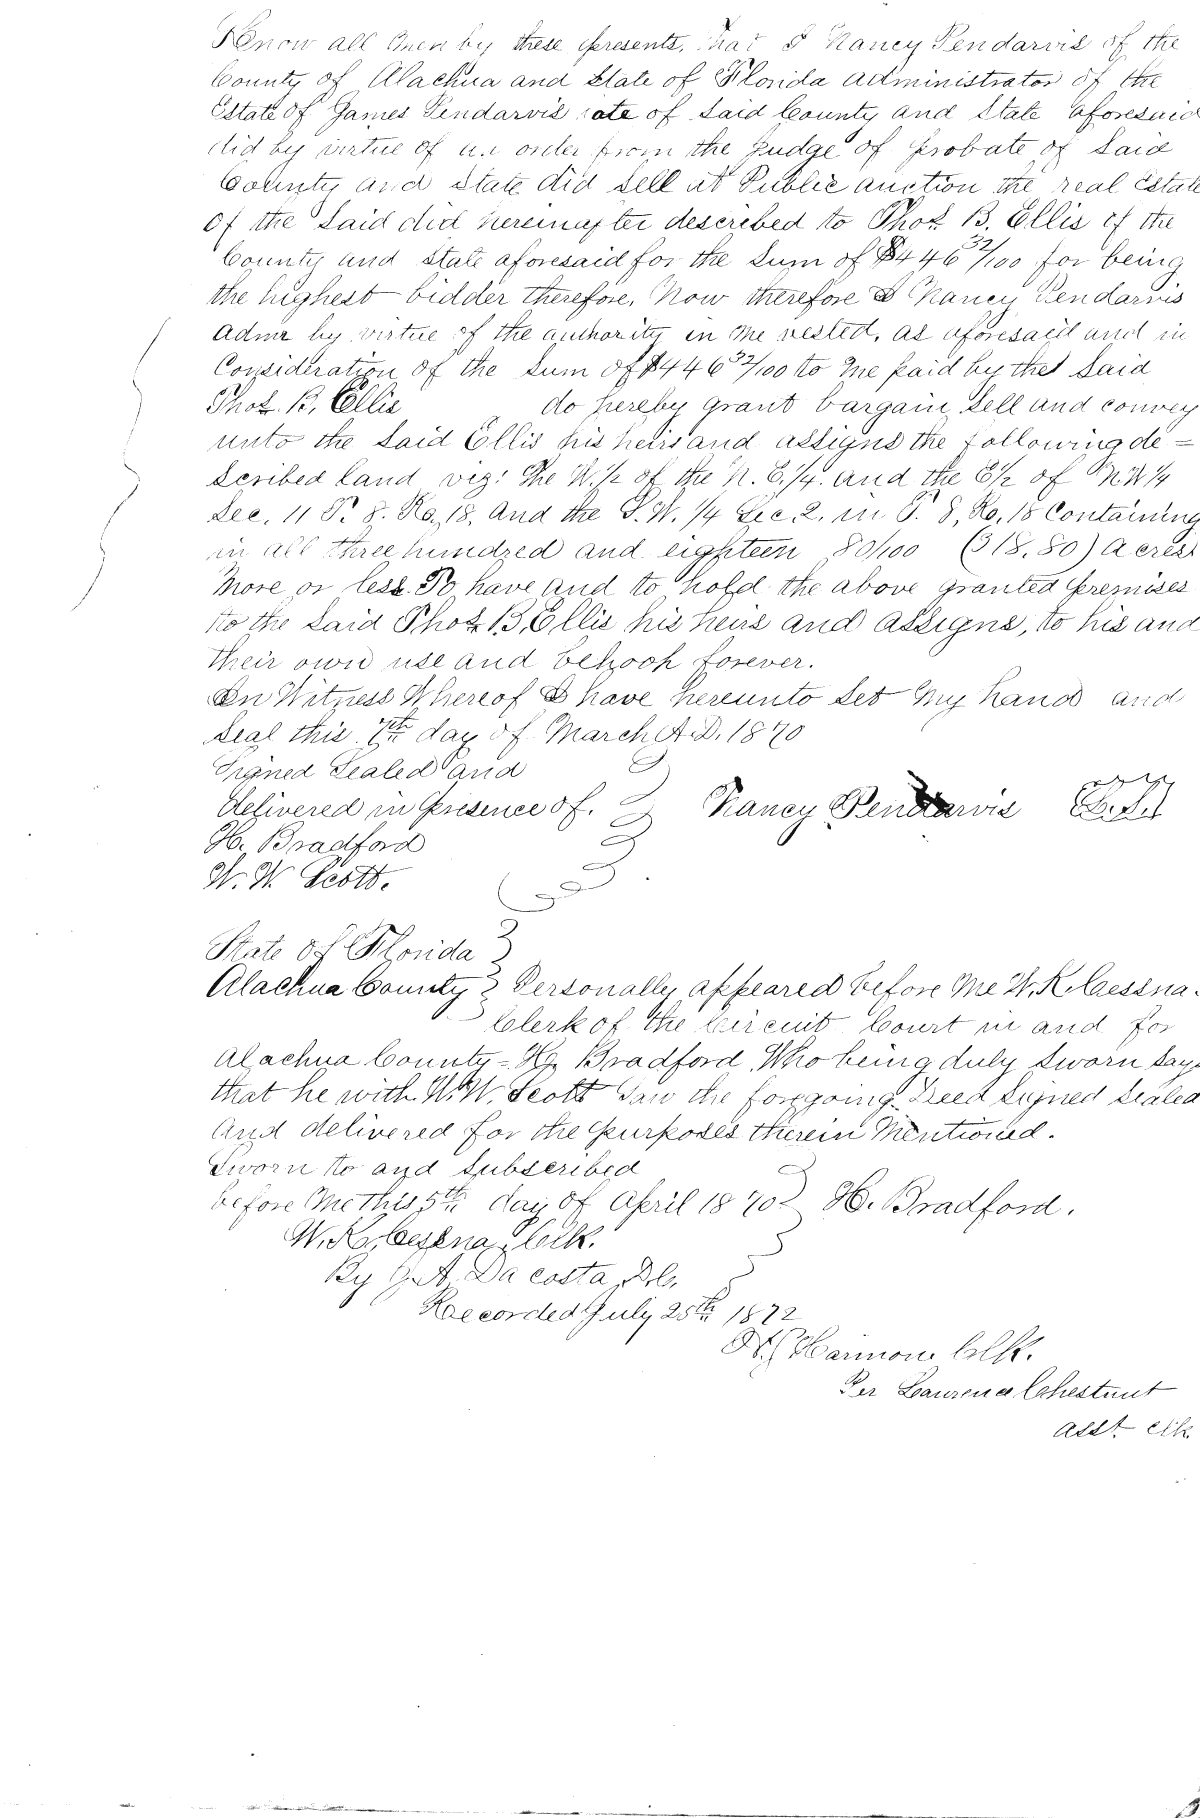 Know all men by these presents, that I Nancy Pendarvis of the
County of Alachua and State of Florida administrator of the
Estate Of James Pendarvis late of Said County and State aforesaid
did by virtue of an order from the Judge of Probate of Said
County and State did Sell at Public auction the real Estate
of the Said did hereinafter described to Thos. B. Ellis of the
County and State aforesaid for the Sum of $446 32/100 for being
the highest bidder therefore, Now therefore I Nancy Pendarvis
Admr by virtue of the authority in me vested, as aforesaid and in
Consideration of the Sum of $446 32/100 to me paid by the Said
Thos. B. Ellis do hereby grant bargain Sell and convey
unto the Said Ellis his heirs and assigns the following de=
scribed land viz: The W. 1/2 of the N. E. 1/4. and the E 1/2 of N.W 1/4
Sec. 11 T. 8. Ra. 18, and the S. W. 1/4 Sec. 2. in T. 8, Ra. 18 Containing
in all three hundred and eighteen 80/100 (318.80) Acres
more or less. To have and to hold the above granted premises
to the Said Thos. B. Ellis his heirs and assigns, to his and
their own use and behoof forever.
In Witness Whereof I have hereunto Set my hand and
Seal this 7th day of March A.D. 1870
Signed Sealed and
delivered in presence of. Nancy Pendarvis (L.S.)
H. Bradford
W. W. Scott.
State of Florida
Alachua County Personally appeared before me W. K. Cessna.
Clerk of the Circuit Court in and for
Alachua County = H. Bradford Who being duly Sworn Says
that he with W. W. Scott Saw the foregoing Deed Signed Sealed
And delivered for the purposes therein Mentioned.
Sworn to and Subscribed
before me this 5th day of April 1870 H. Bradford.
W. K. Cessna, Clk.
By J. A. Dacosta, D.C.
Recorded July 25th 1872
Harmon Clk.
Per Laurence Chestnut
asst clk